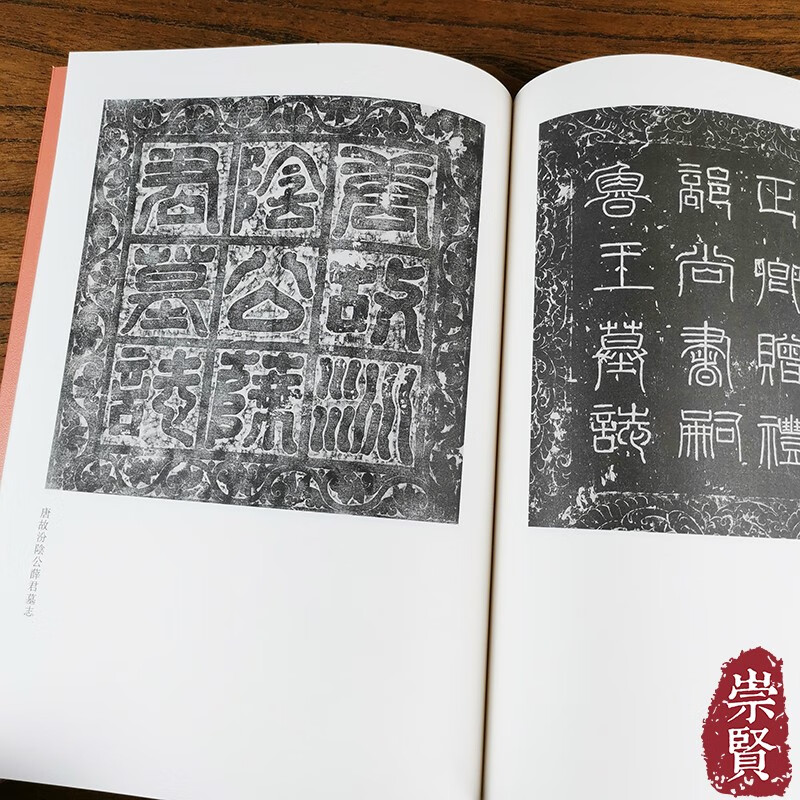 唐故汾
陰公薛
君墓誌
唐故汾陰公薛君墓志
正卿贈禮
部尚書嗣
魯王墓誌
崇賢